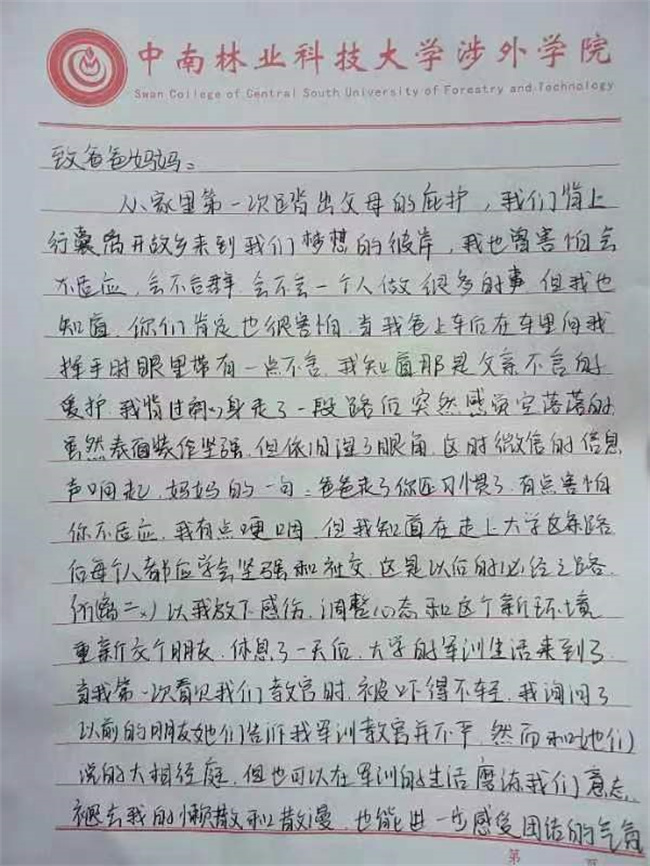 中南林业科技大学涉外学院
Swan College of Central South University of Forestry and Technology
致爸爸妈妈：
从家里第一次踏出父母的庇护，我们背上
行囊离开故乡来到我们梦想的彼岸，我也曾害怕会
不适应，会不合群，会不会一个人做很多的事，但我也
知道，你们肯定也很害怕，当我爸上车后在车里向我
挥手时眼里带有一点不舍，我知道那是父亲不言的
爱护，我背过身走了一段路后突然感觉空落落的
虽然表面装作坚强，但依旧湿了眼角，这时微信的信息
声响起，妈妈的一句：爸爸走了你还习惯了，有点害怕
你不适应，我有点哽咽，但我知道在走上大学这条路
后每个人都应学会坚强和社交，这是以后的必经之路，
所以我放下感伤，调整心态和这个新环境
重新交个朋友，休息了一天后，大学的军训生活来到了
当我第一次看见我们教官时，被吓得不轻，我询问了
以前的朋友她们告诉我军训教官并不平，然而和她们
说的大相径庭，但也可以在军训的生活磨练我们意志，
褪去我的懒散和散漫，也能进一步感受团结的气氛
第
页